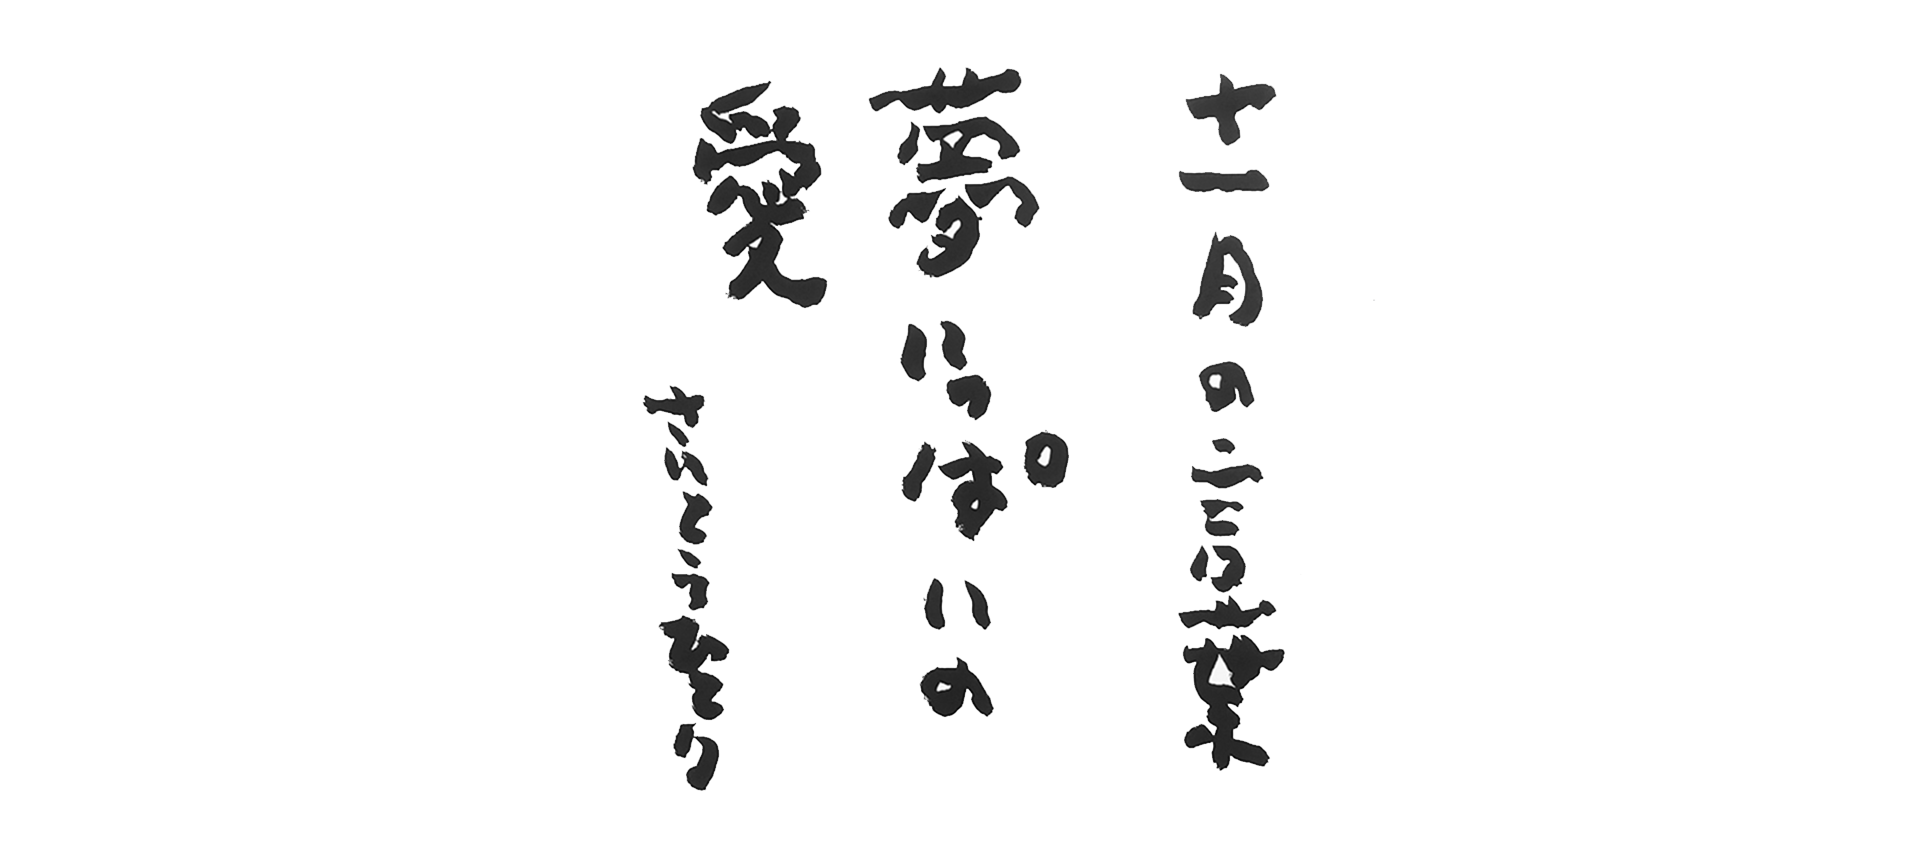 十一月の言葉
夢いっぱいの
愛
さいとうひとり